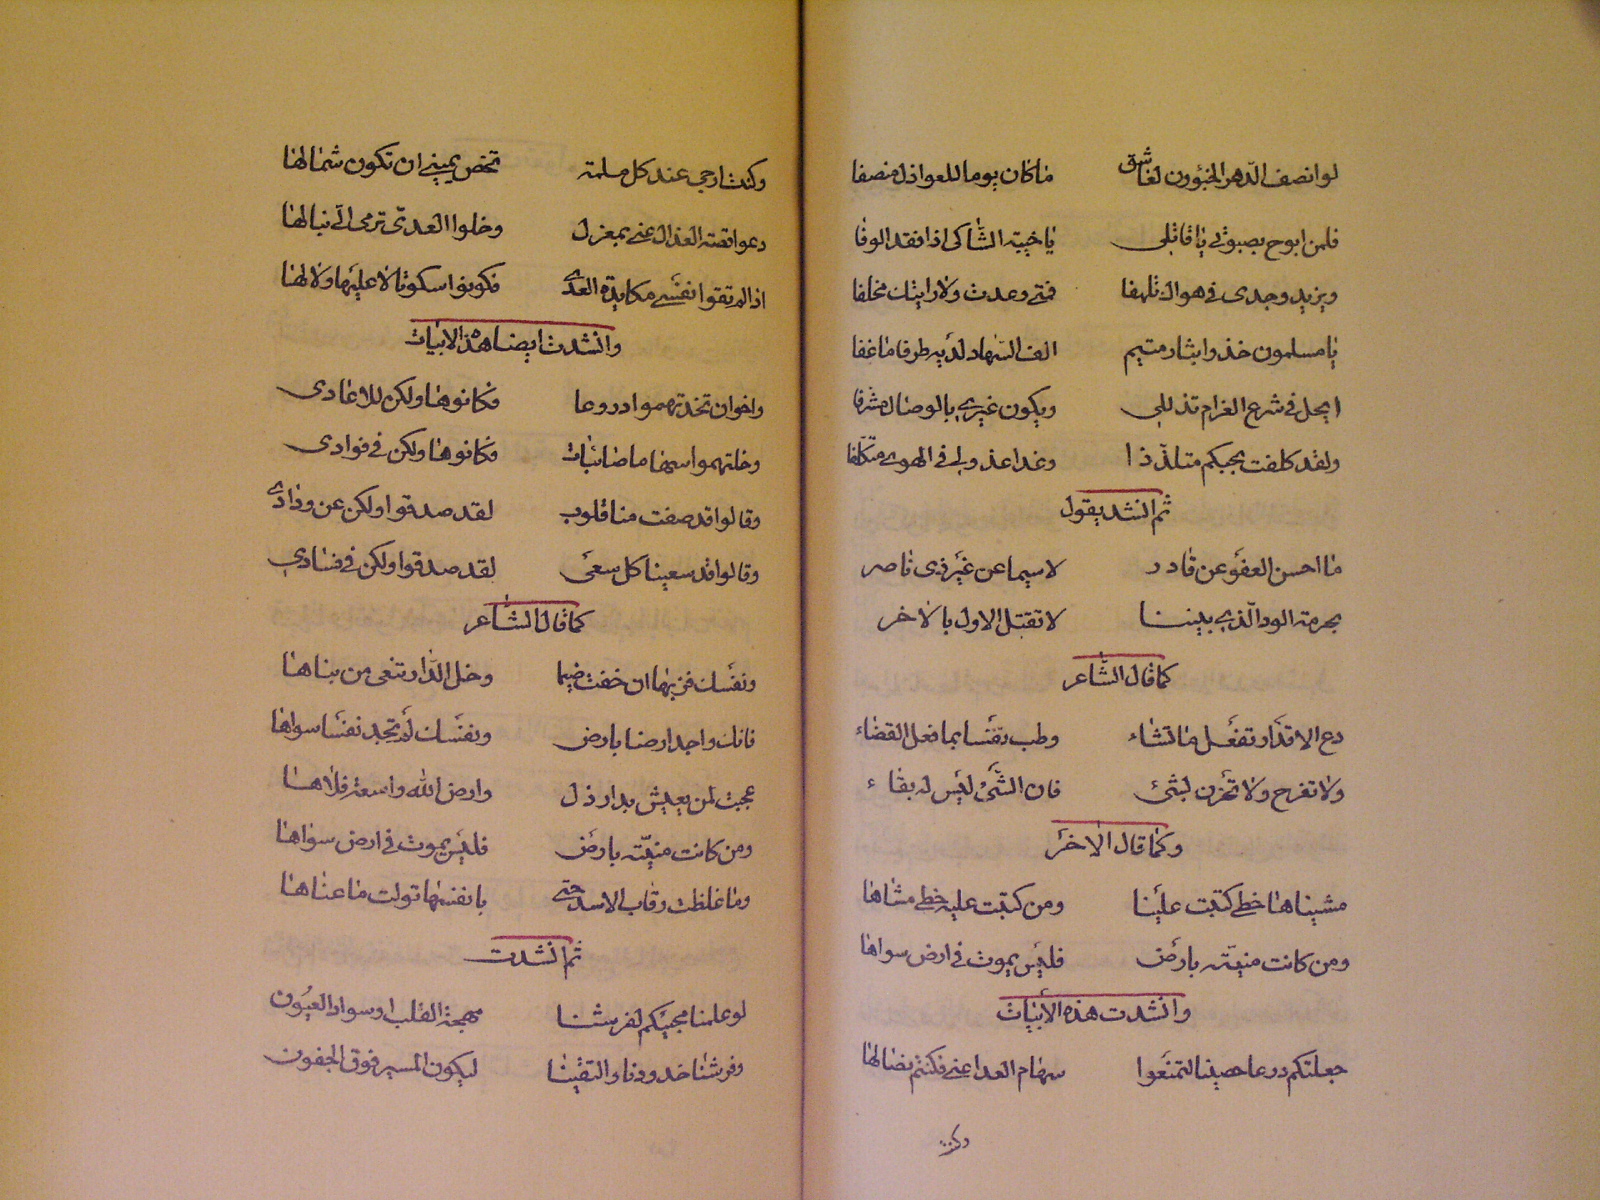 لو انصف الدهر الخؤون لعاشق ما كان يوما للعواذل منصفا
فلمن ابوح بصبوتي يا قاتلي يا خيبة الشاكي اذا فقد الوفا
ويزيد وجدي في هواك تلهفا فمتى وعدت ولا رايتك مخلفا
يا مسلمون خذوا بثار متيم الف السهاد لديه طرف ما غفا
ايحل في شرع الغرام تذللي ويكون غيري بالوصال مشرفا
ولقد كلفت بحبكم متلذذا وغدا عذولي في الهوى متكلفا
ثم انشد يقول
ما احسن العفو عن قادر لا سيما عن غير ذي ناصر
بحرمة الود الذي بيننا لا تقتل الاول بالاخر
كما قال الشاعر
دع الاقدار تفعل ما تشاء وطب نفسا بما فعل القضاء
ولا تفرح ولا تحزن لشئ فان الشئ ليس له بقاء
وكما قال الاخر
مشيناها خطى كتبت علينا ومن كتبت عليه خطى مشاها
ومن كانت منيته بارض فليس يموت في ارض سواها
وانشدت هذه الابيات
جعلتكم درعا حصينا لتمنعوا سهام العدا عني فكنتم نصالها
وكنت
وكنت ارجي عند كل ملمة تخص يميني ان تكون شمالها
دعوا قصة العذال عني بمعزل وخلوا العدى ترمي الي نبالها
اذا لم تقوا نفسي مكايدة العدى فكونوا سكوتا لا عليها ولا لها
وانشدت ايضا هذه الابيات
واخوان تخذتهموا دروعا فكانوها ولكن للاعادى
وخلتهموا سهاما صائبات فكانوها ولكن في فوادى
وقالوا قد صفت منا قلوب لقد صدقوا ولكن عن ودادى
وقالوا قد سعينا كل سعي لقد صدقوا ولكن في فسادي
كما قال الشاعر
ونفسك فز بها ان خفت ضيما وخل الدار تنعى من بناها
فانك واجد ارضا بارض ونفسك لم تجد نفسا سواها
عجبت لمن يعيش بدار ذل وارض الله واسعة فلاها
ومن كانت منيته بارض فليس يموت في ارض سواها
وما غلظت رقاب الاسد حتى بانفسها تولت ما عناها
ثم انشدت
لو علمنا مجيئكم لفرشنا مهجة القلب او سواد العيون
وفرشنا خدودنا والتقينا ليكون المسير فوق الجفون